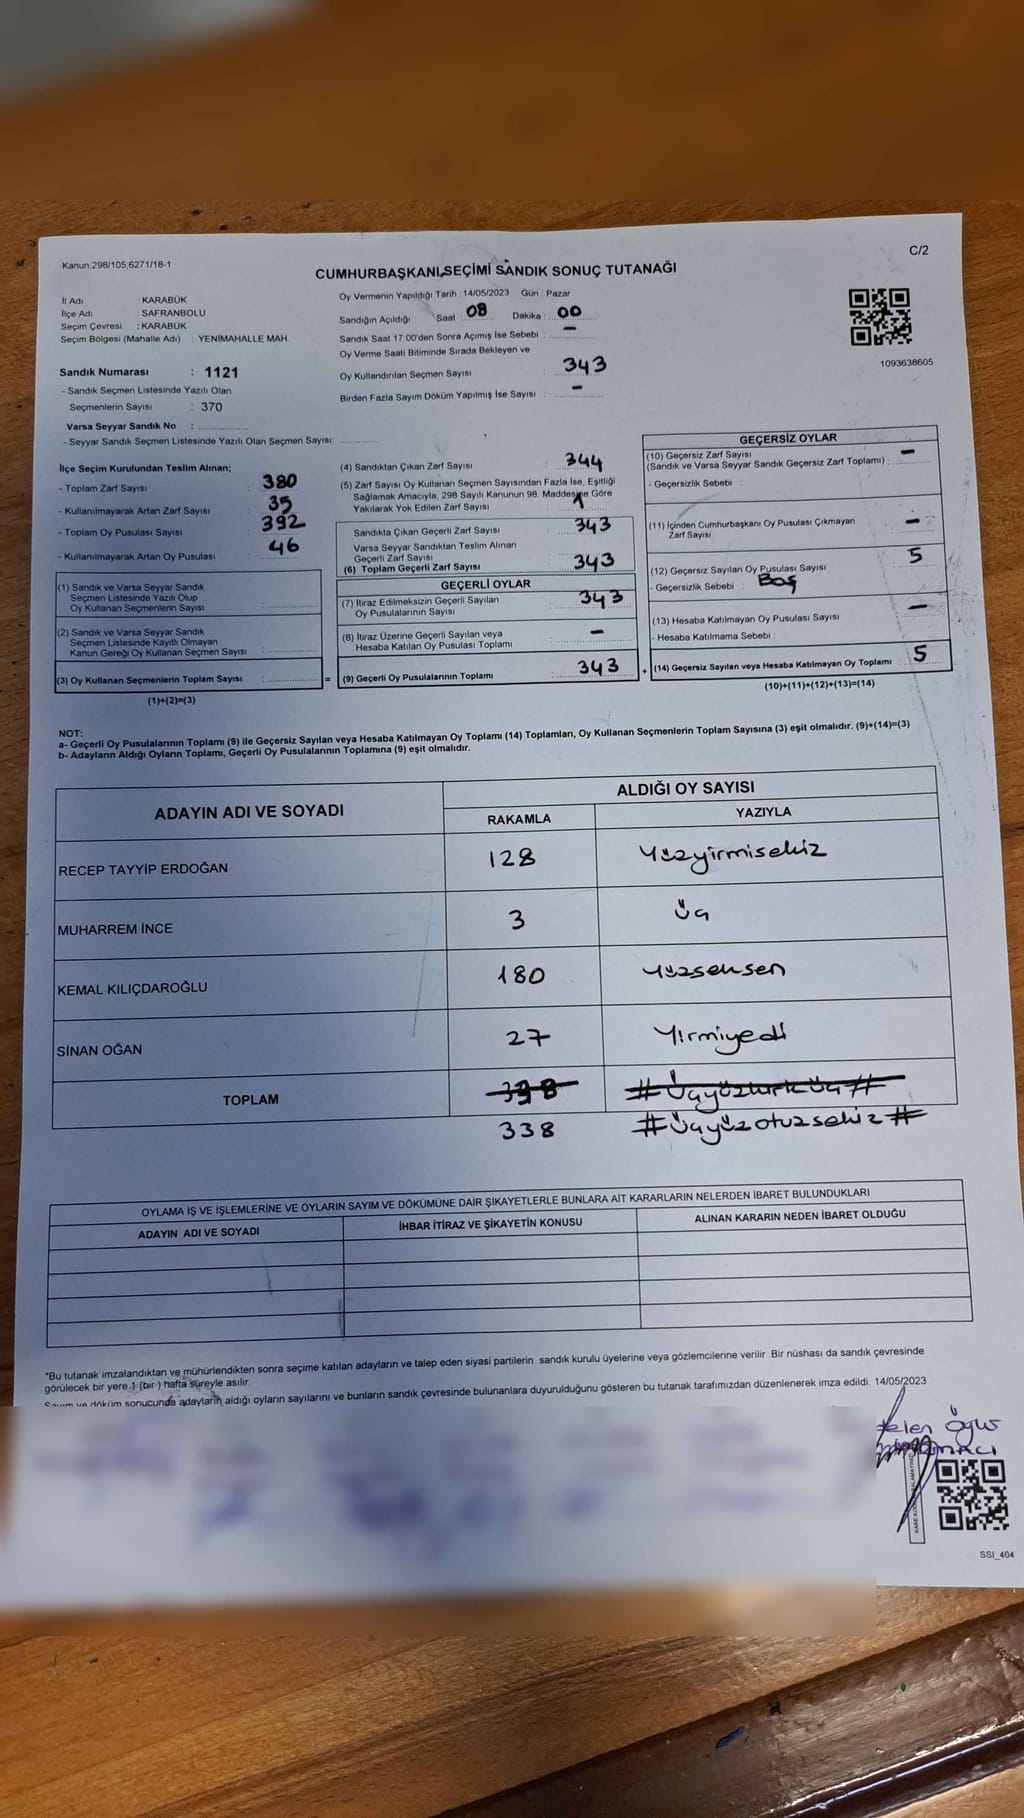 Kanun:298/105;6271/18-1
C/2
CUMHURBAŞKANI SEÇİMİ SANDIK SONUÇ TUTANAĞI
İl Adı : KARABÜK
İlçe Adı : SAFRANBOLU
Seçim Çevresi : KARABÜK
Seçim Bölgesi (Mahalle Adı) : YENİMAHALLE MAH.
Sandık Numarası : 1121
- Sandık Seçmen Listesinde Yazılı Olan
Seçmenlerin Sayısı : 370
Varsa Seyyar Sandık No :
- Seyyar Sandık Seçmen Listesinde Yazılı Olan Seçmen Sayısı:
Oy Vermenin Yapıldığı Tarih : 14/05/2023 Gün : Pazar
Sandığın Açıldığı Saat : 08 Dakika : 00
Sandık Saat 17:00'den Sonra Açımış İse Sebebi : -
Oy Verme Saati Bitiminde Sırada Bekleyen ve
Oy Kullandırılan Seçmen Sayısı : 343
Birden Fazla Sayım Döküm Yapılmış İse Sayısı : -
1093638605
İlçe Seçim Kurulundan Teslim Alınan;
- Toplam Zarf Sayısı : 380
- Kullanılmayarak Artan Zarf Sayısı : 35
- Toplam Oy Pusulası Sayısı : 392
- Kullanılmayarak Artan Oy Pusulası : 46
(1) Sandık ve Varsa Seyyar Sandık
Seçmen Listesinde Yazılı Olup
Oy Kullanan Seçmenlerin Sayısı :
(2) Sandık ve Varsa Seyyar Sandık
Seçmen Listesinde Kayıtlı Olmayan
Kanun Gereği Oy Kullanan Seçmen Sayısı :
(3) Oy Kullanan Seçmenlerin Toplam Sayısı : =
(1)+(2)=(3)
(4) Sandıktan Çıkan Zarf Sayısı : 344
(5) Zarf Sayısı Oy Kullanan Seçmen Sayısından Fazla İse, Eşitliği
Sağlamak Amacıyla, 298 Sayılı Kanunun 98. Maddesine Göre
Yakılarak Yok Edilen Zarf Sayısı : 1
Sandıkta Çıkan Geçerli Zarf Sayısı : 343
Varsa Seyyar Sandıktan Teslim Alınan
Geçerli Zarf Sayısı :
(6) Toplam Geçerli Zarf Sayısı : 343
GEÇERLİ OYLAR
(7) İtiraz Edilmeksizin Geçerli Sayılan
Oy Pusulalarının Sayısı : 343
(8) İtiraz Üzerine Geçerli Sayılan veya
Hesaba Katılan Oy Pusulası Toplamı : -
(9) Geçerli Oy Pusulalarının Toplamı : 343 +
GEÇERSİZ OYLAR
(10) Geçersiz Zarf Sayısı
(Sandık ve Varsa Seyyar Sandık Geçersiz Zarf Toplamı) : -
- Geçersizlik Sebebi :
(11) İçinden Cumhurbaşkanı Oy Pusulası Çıkmayan
Zarf Sayısı : -
(12) Geçersiz Sayılan Oy Pusulası Sayısı : 5
- Geçersizlik Sebebi : Boş
(13) Hesaba Katılmayan Oy Pusulası Sayısı : -
- Hesaba Katılmama Sebebi :
(14) Geçersiz Sayılan veya Hesaba Katılmayan Oy Toplamı : 5
(10)+(11)+(12)+(13)=(14)
NOT:
a- Geçerli Oy Pusulalarının Toplamı (9) ile Geçersiz Sayılan veya Hesaba Katılmayan Oy Toplamı (14) Toplamları, Oy Kullanan Seçmenlerin Toplam Sayısına (3) eşit olmalıdır. (9)+(14)=(3)
b- Adayların Aldığı Oyların Toplamı, Geçerli Oy Pusulalarının Toplamına (9) eşit olmalıdır.
ADAYIN ADI VE SOYADI
ALDIĞI OY SAYISI
RAKAMLA YAZIYLA
RECEP TAYYİP ERDOĞAN 128 Yüzyirmisekiz
MUHARREM İNCE 3 Üç
KEMAL KILIÇDAROĞLU 180 Yüzseksen
SİNAN OĞAN 27 Yirmiyedi
TOPLAM #Üçyüzkırküç#
338 #Üçyüzotuzsekiz#
OYLAMA İŞ VE İŞLEMLERİNE VE OYLARIN SAYIM VE DÖKÜMÜNE DAİR ŞİKAYETLERLE BUNLARA AİT KARARLARIN NELERDEN İBARET BULUNDUKLARI
ADAYIN ADI VE SOYADI İHBAR İTİRAZ VE ŞİKAYETİN KONUSU ALINAN KARARIN NEDEN İBARET OLDUĞU
*Bu tutanak imzalandıktan ve mühürlendikten sonra seçime katılan adayların ve talep eden siyasi partilerin sandık kurulu üyelerine veya gözlemcilerine verilir .Bir nüshası da sandık çevresinde
görülecek bir yere 1 (bir ) hafta süreyle asılır.
Sayım ve döküm sonucunda adayların aldığı oyların sayılarını ve bunların sandık çevresinde bulunanlara duyurulduğunu gösteren bu tutanak tarafımızdan düzenlenerek imza edildi. 14/05/2023
SSI_404